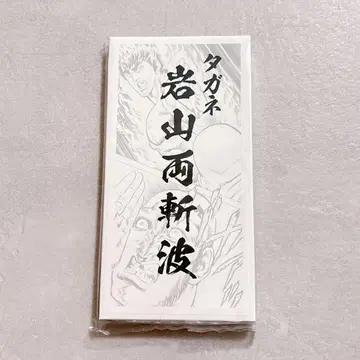 タガネ
岩山両斬波